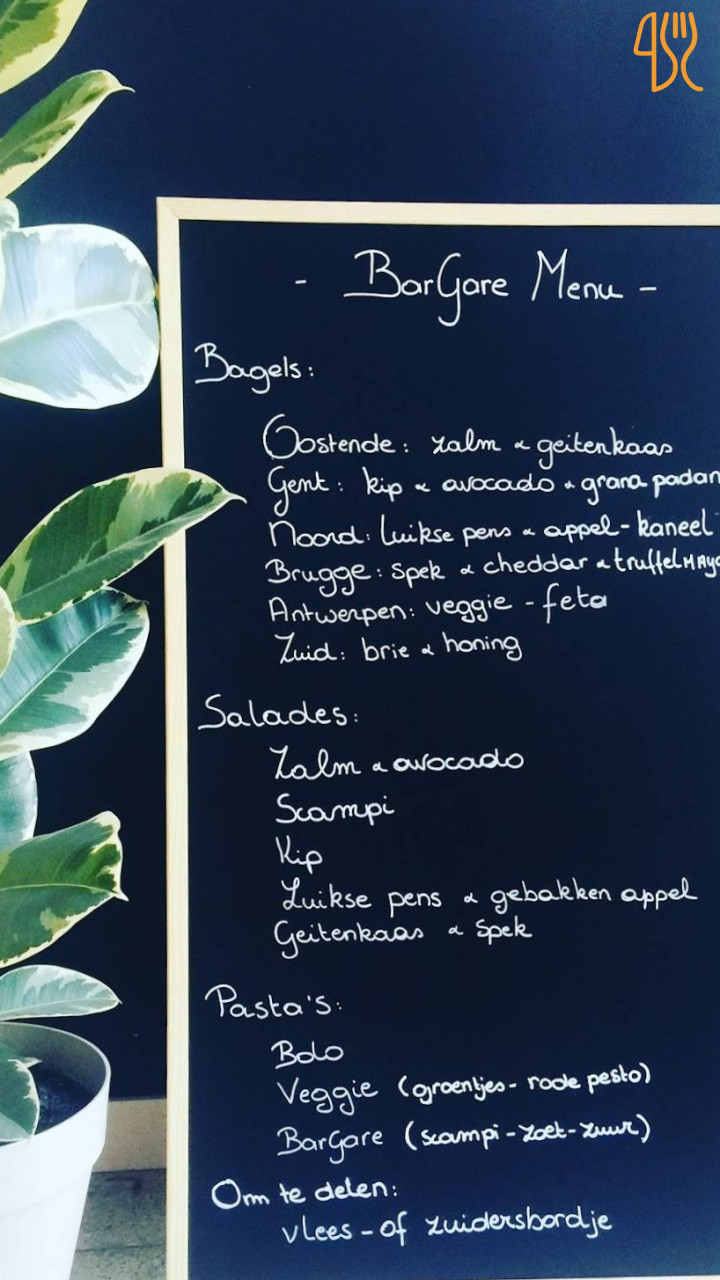 - BarGare Menu -
Bagels:
Oostende: zalm & geitenkaas
Gent: kip & avocado & grana padan
Noord: Luikse pens & appel-kaneel
Brugge: spek & cheddar & truffelmayo
Antwerpen: veggie - feta
Zuid: brie & honing
Salades:
Zalm & avocado
Scampi
Kip
Luikse pens & gebakken appel
Geitenkaas & spek
Pasta's:
Bolo
Veggie (groentjes- rode pesto)
BarGare (scampi-zoet-zuur)
Om te delen:
vlees-of zuidersbordje